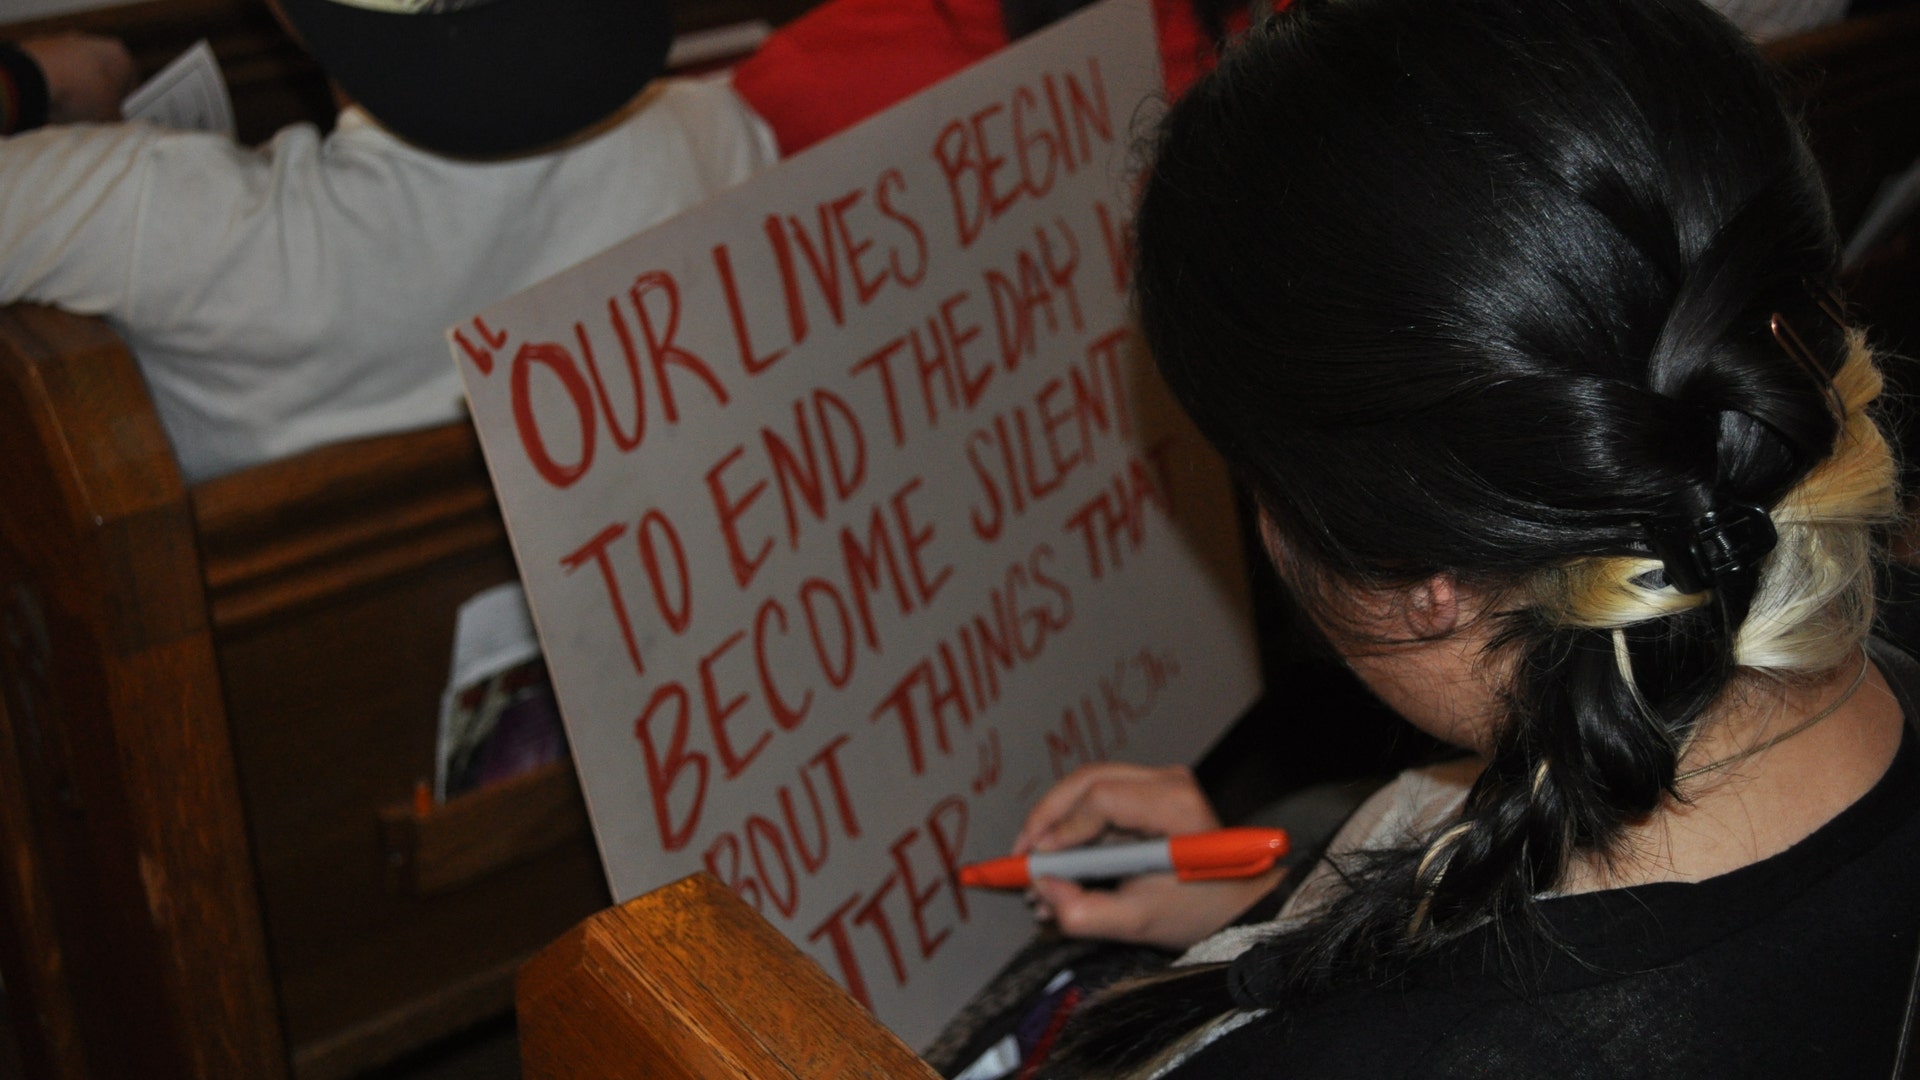 "OUR LIVES BEGIN
TO END THE DAY W
BECOME SILENT
ABOUT THINGS THAT
MATTER" - MLK Jr.